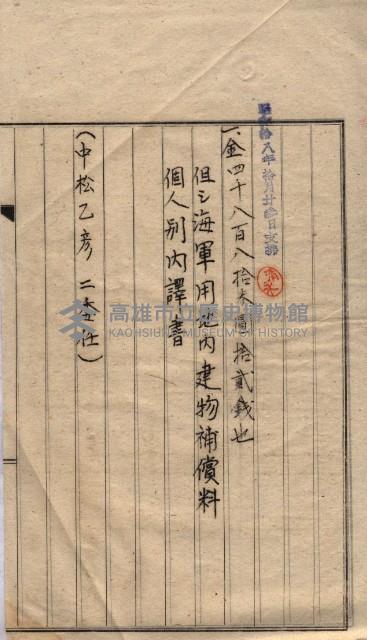 昭和拾八年拾月廿日支拂
一、金四千八百八拾六圓拾貳錢也
但シ海軍用地内建物補償料
個人別内譯書
(中松乙彦 委任)
高雄市立歷史博物館
KAOHSIUNG MUSEUM OF HISTORY